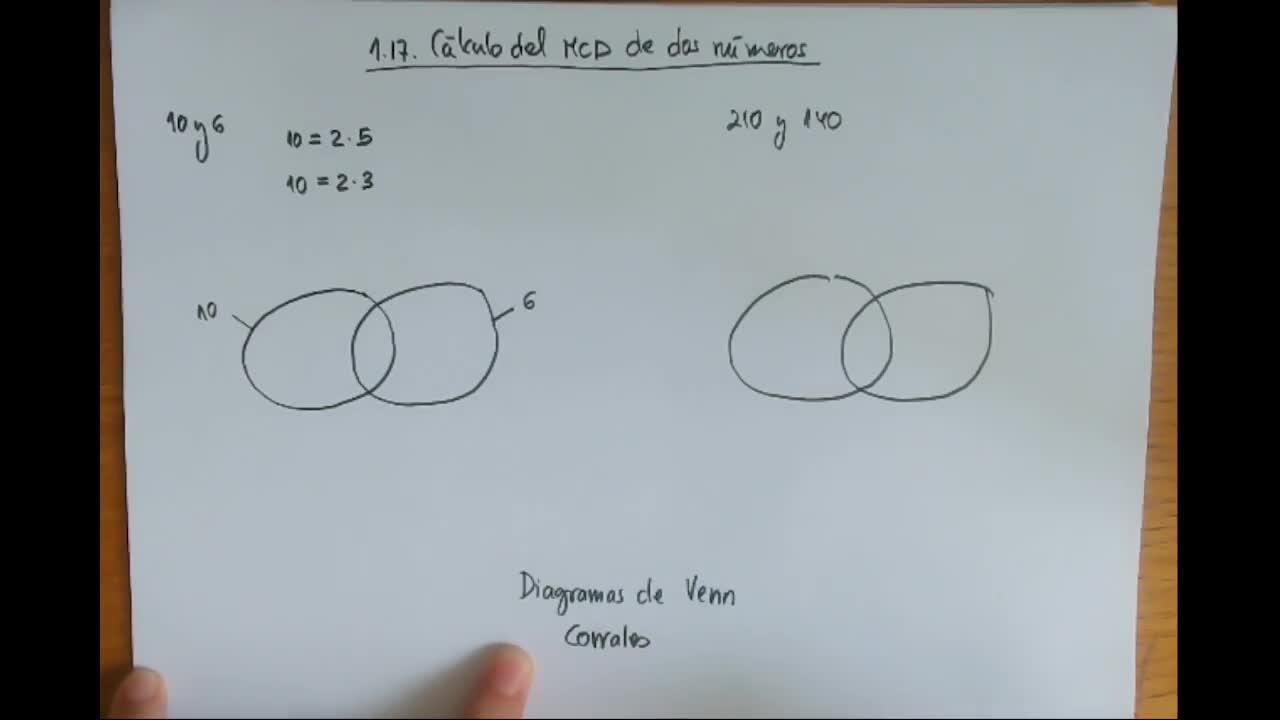 1.17. Cálculo del MCD de dos números
10 y 6
10 = 2·5
10 = 2·3
210 y 140
10
6
Diagramas de Venn
Corrales